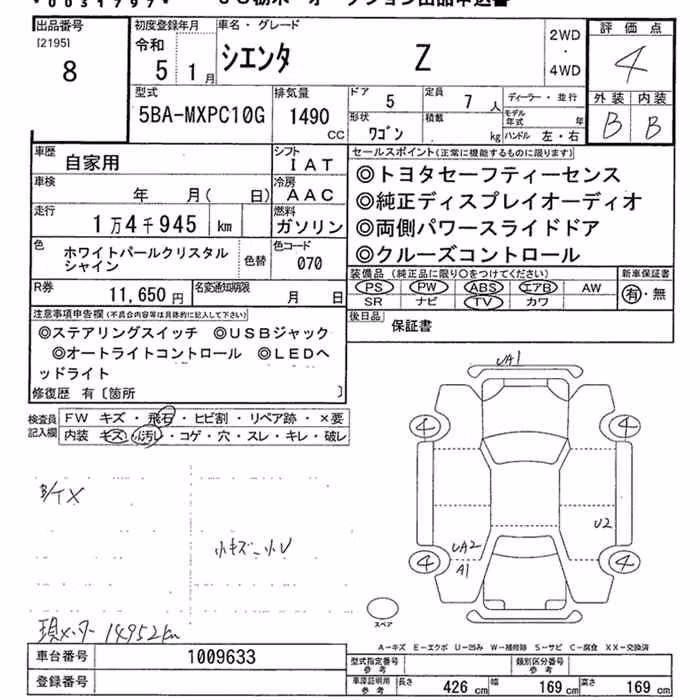 *0031797*
出品番号 [2195] 8
初度登録年月 令和 5年 1月
車名・グレード シエンタ Z
2WD ・ 4WD
評価点 4
型式 5BA-MXPC10G
排気量 1490 CC
ドア 5
定員 7 人
ディーラー・並行
形状 ワゴン
積載 kg
モデル年式 年
ハンドル 左・右
外装 B 内装 B
車歴 自家用
シフト IAT
車検 年 月( 日)
冷房 AAC
走行 1万4千945 km
燃料 ガソリン
色 ホワイトパールクリスタルシャイン
色替
色コード 070
R券 11,650円
名変通知期限 月 日
セールスポイント(正常に機能するものに限ります)
◎トヨタセーフティーセンス
◎純正ディスプレイオーディオ
◎両側パワースライドドア
◎クルーズコントロール
装備品 (純正品に限り○をつけてください)
PS PW ABS エアB AW
SR ナビ TV カワ
新車保証書 有・無
後日品 保証書
注意事項申告欄(不具合内容等は具体的に記入して下さい)
◎ステアリングスイッチ ◎USBジャック
◎オートライトコントロール ◎LEDヘ
ッドライト
修復歴 有〔箇所 〕
検査員記入欄
FW キズ・飛石・ヒビ割・リペア跡・×要
内装 キズ・汚レ・コゲ・穴・スレ・キレ・破レ
小キズ
現メーター 14952km
UA1
4 4
U2
UA2
A1
4 4
スペア
A-キズ E-エクボ U-凹み W-補修跡 S-サビ C-腐食 XX-交換済
車台番号 1009633
登録番号
型式指定番号 参考
類別区分番号 参考
車庫証明用 参考 長さ 426 cm 幅 169 cm 高さ 169 cm